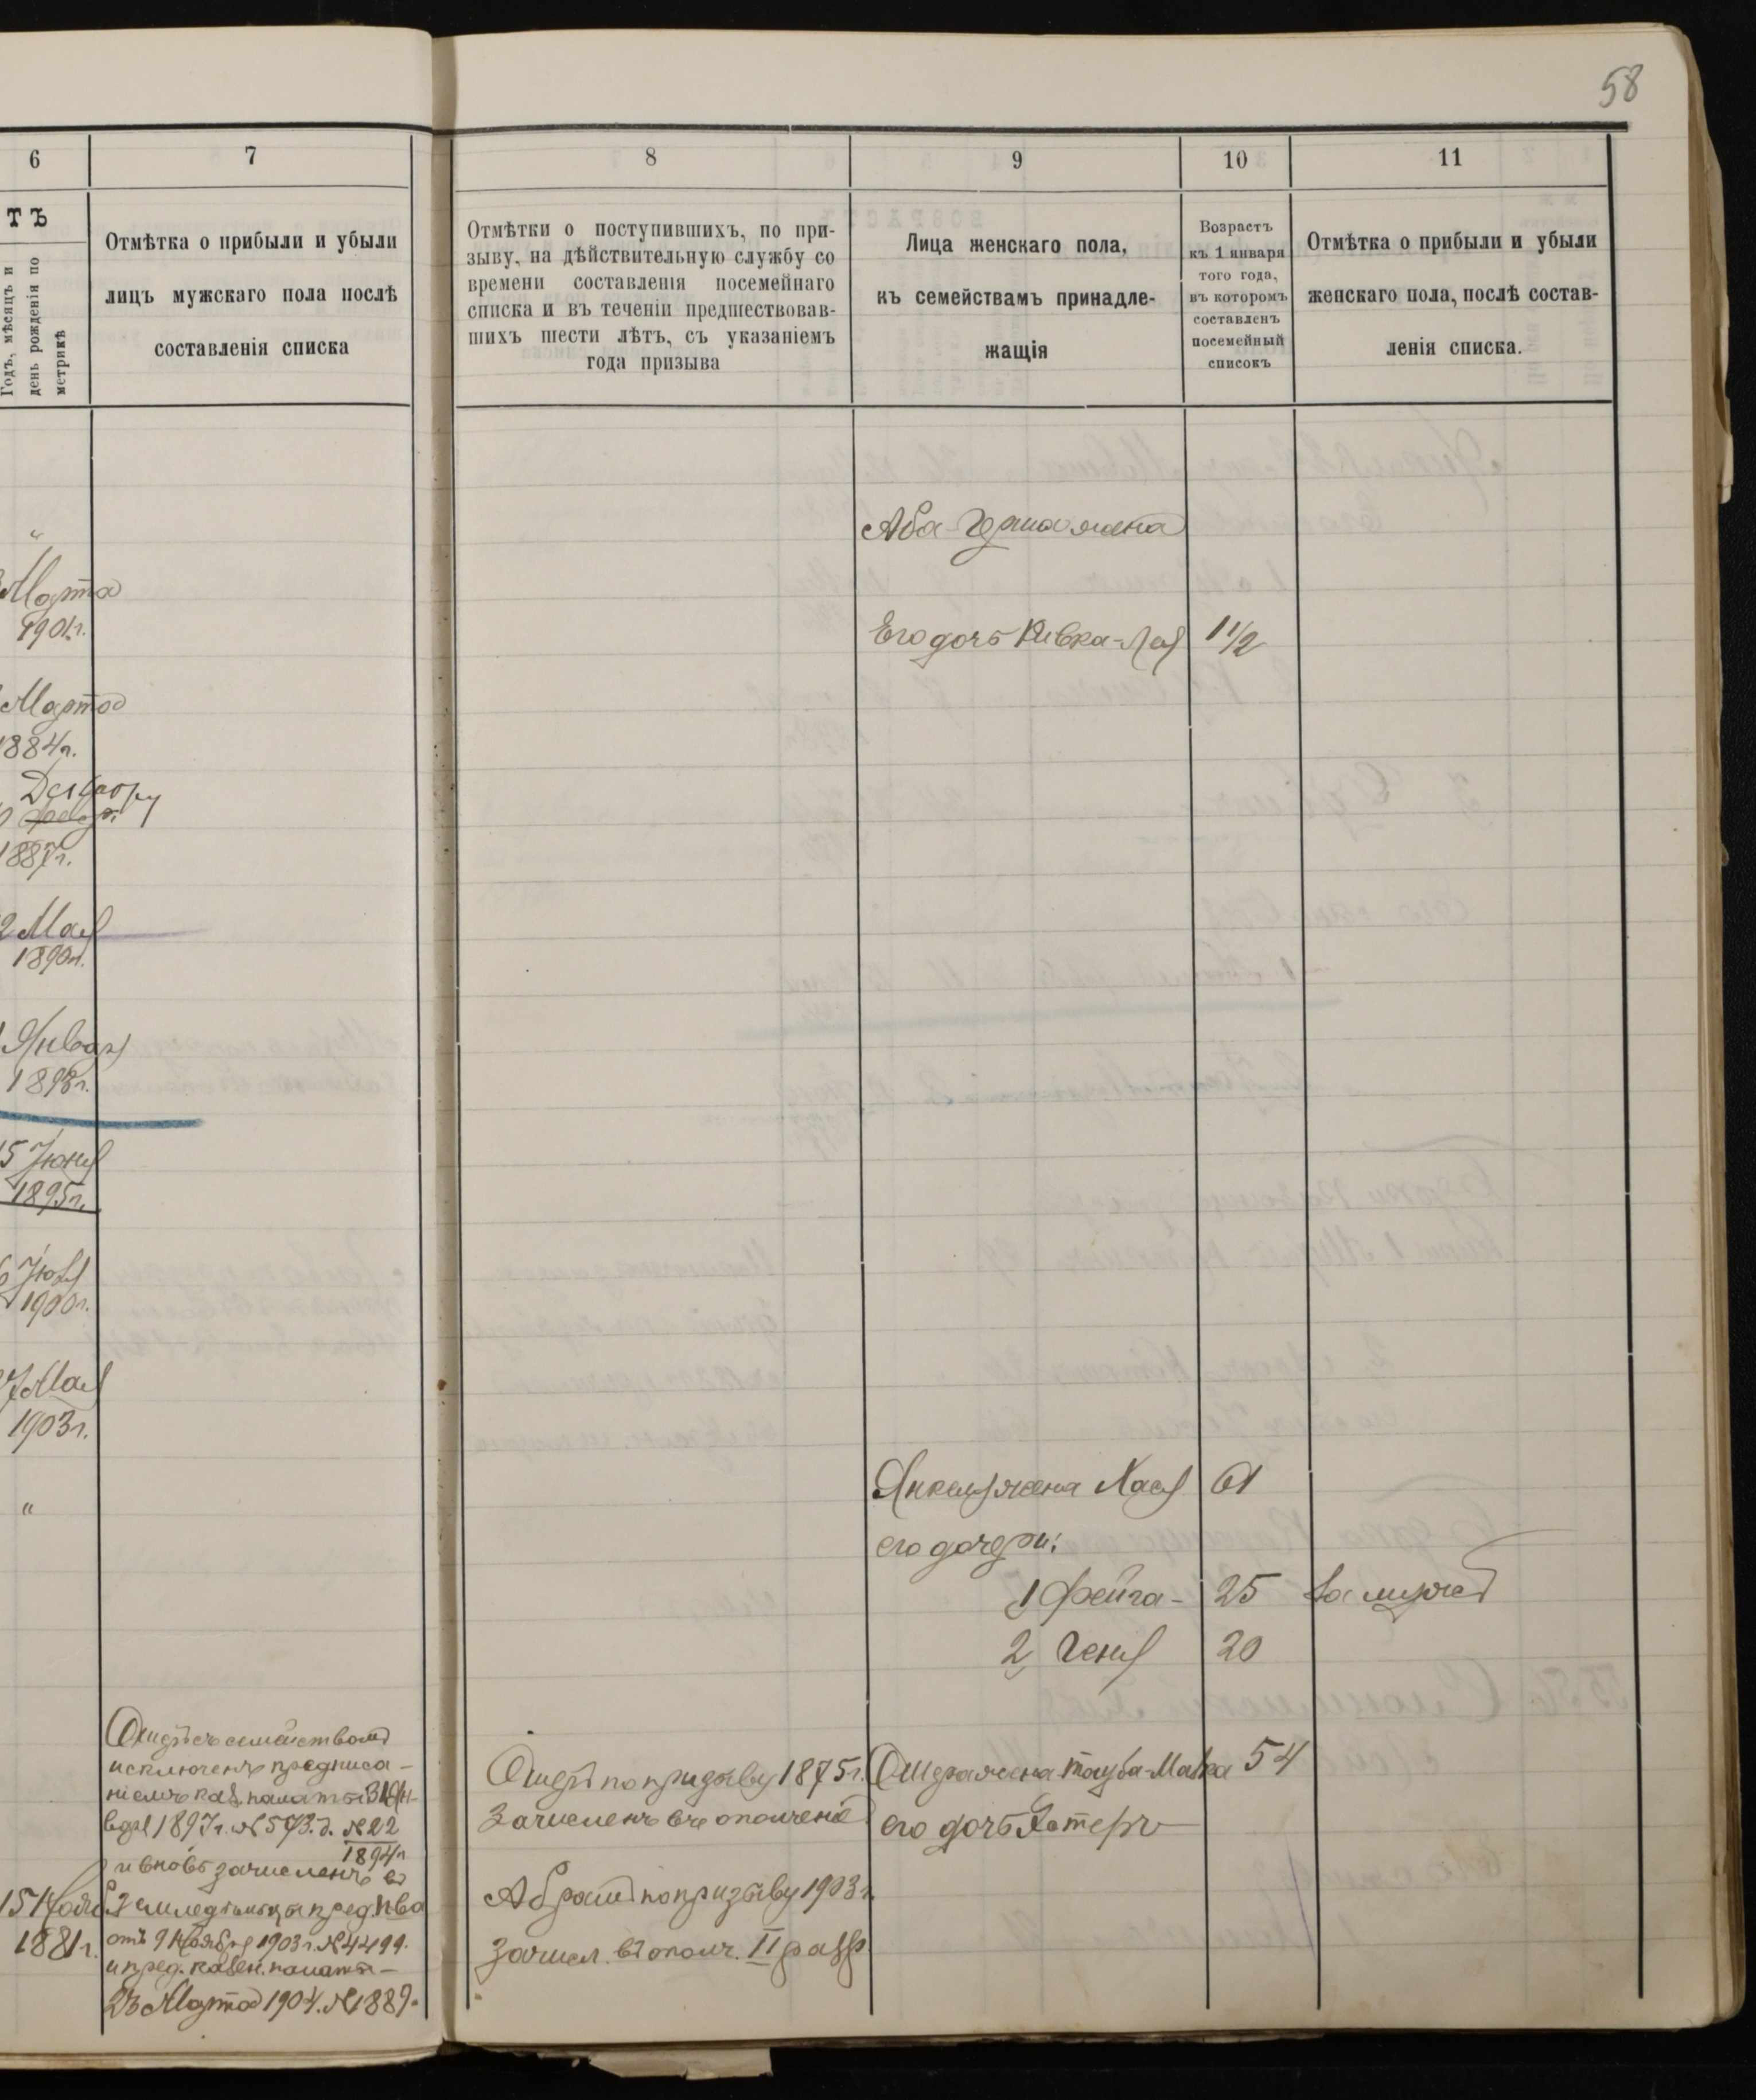 58
6
7
8
9
10
11
ТЪ
Годъ, мѣсяцъ и
день рожденія по
метрикѣ
Отмѣтка о прибыли и убыли
лицъ мужскаго пола послѣ
составленія списка
Отмѣтки о поступившихъ, по при-
зыву, на дѣйствительную службу со
времени составленія посемейнаго
списка и въ теченіи предшествовав-
шихъ шести лѣтъ, съ указаніемъ
года призыва
Лица женскаго пола,
къ семействамъ принадле-
жащія
Возрастъ
къ 1 января
того года,
въ которомъ
составленъ
посемейный
списокъ
Отмѣтка о прибыли и убыли
женскаго пола, послѣ состав-
ленія списка.
"
Аба жена
Марта
1901г.
Его дочь Ривка-Лея 1 1/2
Марта
1884г.
1887г.
2 Мая
1890г.
Января
1898г.
15 Июня
1895г.
1900г.
Мая
1903г.
Янкеля жена Хая 61
"
его дочери:
1 Фейга - 25 замужем
2 Геня 20
Ошеръ съ семействомъ
исключенъ предписа-
ніемъ каз. палаты 31 Ян-
варя 1897г. № 573. д. № 22
1894г
и вновь зачисленъ въ
земледѣльцы пред.
отъ 9 Ноября 1903г. № 4499.
и пред. казен. палаты -
23 Марта 1904. № 1889.
15 Ноября
1881г.
Ошеръ по призыву 1875г.
зачисленъ въ ополченіе
Абрамъ по призыву 1903г.
зачисл. въ ополч. II разр.
Ошера жена Тауба-Малка 54
его дочь Эстеръ